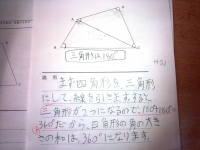 三角形は、180°
説明
まず四角形を、三角形
にして、線を引きます。すると、
三角形が2つになるので、180°+180°=
360°だから、四角形の角の大き
さの和は、360°になります。